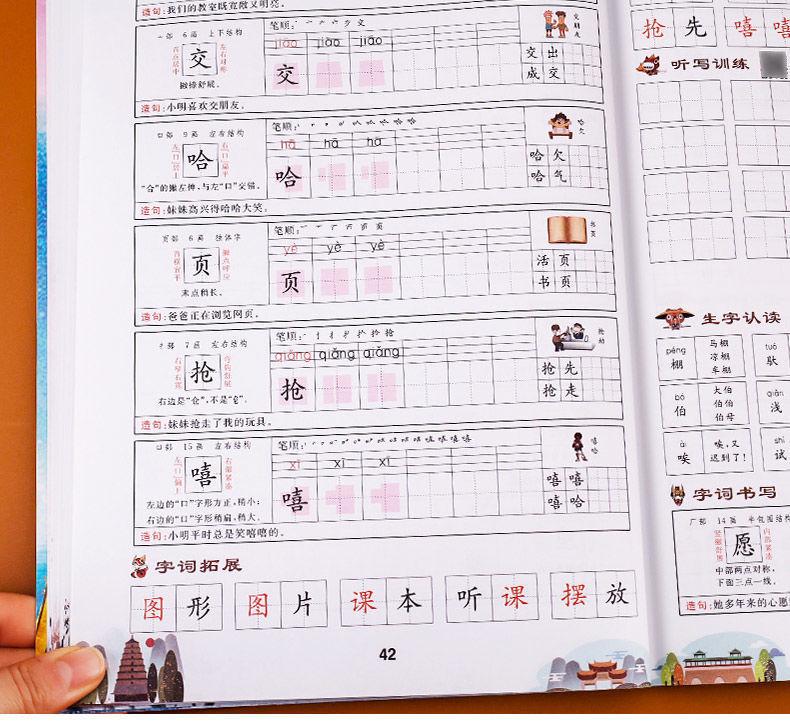 造句:我们的教室既宽敞又明亮。
亠部 6画 上下结构
首点居中
交
左右对称
撇捺舒展。
笔顺:
jiāo jiāo jiāo
交
交朋友
交出
成交
造句:小明喜欢交朋友。
口部 9画 左右结构
左“口”居上
哈
右“口”扁平
“合”的撇左伸,与左“口”交错。
笔顺:
hā hā hā
哈
哈欠
哈欠
哈气
造句:妹妹高兴得哈哈大笑。
页部 6画 独体字
首横宜平
页
撇点呼应
末点稍长。
笔顺:
yè yè yè
页
书页
活页
书页
造句:爸爸正在浏览网页。
扌部 7画 左右结构
抢
右边是“仓”,不是“仑”。
笔顺:
qiǎng qiǎng qiǎng
抢
抢劫
抢先
抢走
造句:妹妹抢走了我的玩具。
口部 15画 左右结构
左“口”偏上
嘻
右部紧凑
左边的“口”字形方正,稍小;
右边的“口”字形稍扁,稍大。
笔顺:
xī xī xī
嘻
嘻哈
嘻嘻
嘻哈
造句:小明平时总是笑嘻嘻的。
字词拓展
图形 图片 课本 听课 摆放
42
抢先 嘻嘻
听写训练
生字认读
péng
棚
马棚
凉棚
车棚
tuó
驮
bó
伯
大伯
伯伯
伯母
qiǎn
浅
ài
唉
唉,又
迟到了!
shì
试
字词书写
厂部 14画 半包围结构
竖撇舒展
愿
内部紧凑
中部两点对称,
下面三点一线。
造句:她多年来的心愿